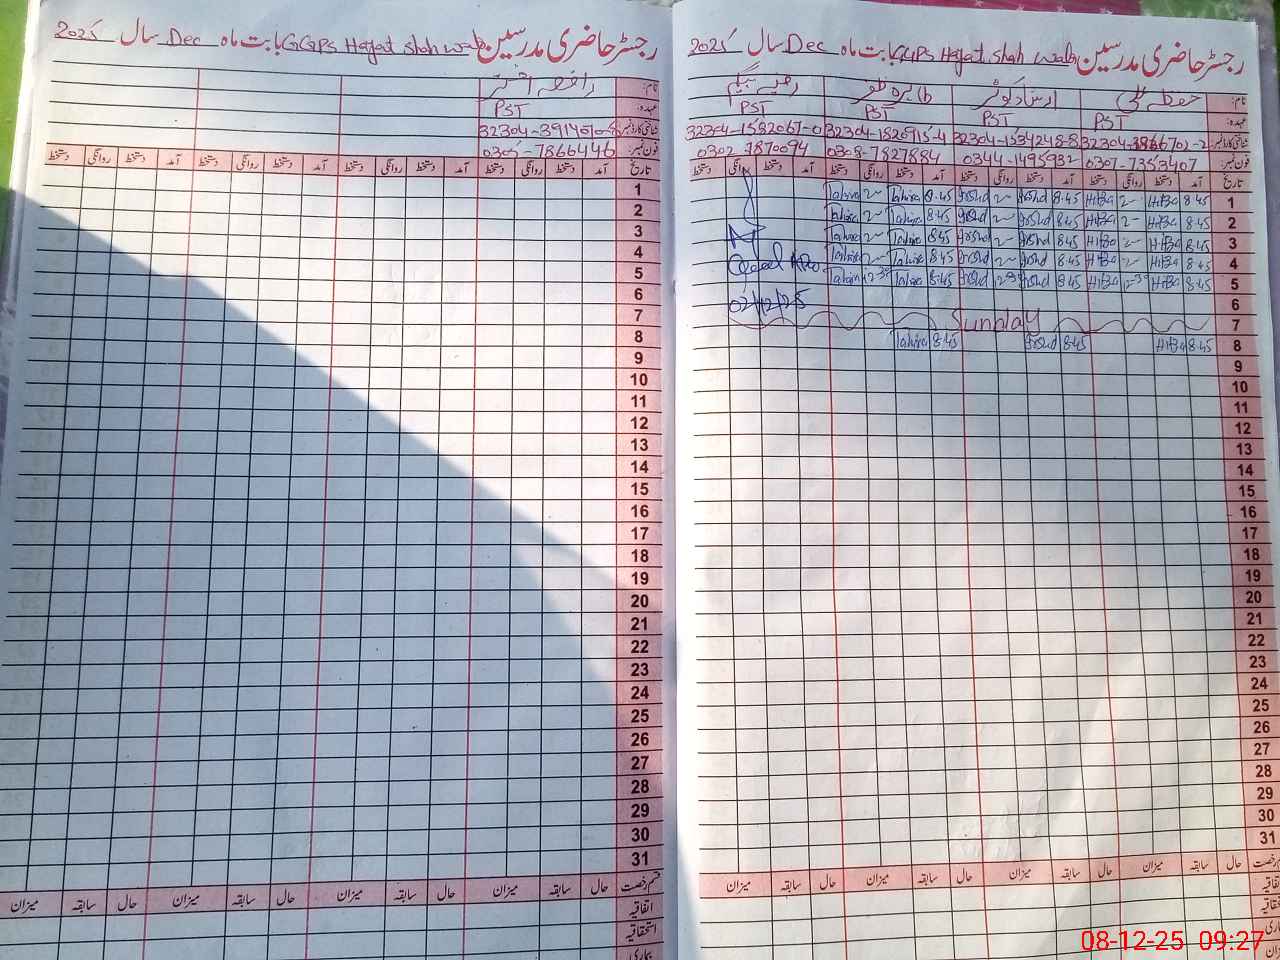 رجسٹر حاضری مدرسین GGPS Hayat Shah Wala بابت ماہ Dec سال 2025
نام: حفظہ علی ارشاد کوثر طاہرہ ظفر رضیہ بیگم
عہدہ: PST PST PST PST
شناختی کارڈ نمبر 32304-1534248-8 32304-1820915-4 32304-1582067-0
فون نمبر: 0307-7353407 0344-1495932 0308-7827884 0302-7870094
تاریخ آمد دستخط روانگی دستخط آمد دستخط روانگی دستخط آمد دستخط روانگی دستخط آمد دستخط روانگی دستخط
1 8.45 Hifza 2 Hifza 8.45 Irshd 2 Irshd 8.45 Tahira 2 Tahira
2 8.45 Hifza 2 Hifza 8.45 Irshd 2 Irshd 8.45 Tahira 2 Tahira
3 8.45 Hifza 2 Hifza 8.45 Irshd 2 Irshd 8.45 Tahira 2 Tahira
4 8.45 Hifza 2 Hifza 8.45 Irshd 2 Irshd 8.45 Tahira 2 Tahira
5 8.45 Hifza 12-30 Hifza 8.45 Irshd 12-30 Irshd 8.45 Tahira 12-30 Tahira
6 02/12/25
7 Sunday
8 8.45 Hifza 8.45 Irshd 8.45 Tahira
9
10
11
12
13
14
15
16
17
18
19
20
21
22
23
24
25
26
27
28
29
30
31
رخصت حال سابقہ میزان حال سابقہ میزان حال سابقہ میزان حال سابقہ میزان
رجسٹر حاضری مدرسین GGPS Hayat Shah Wala بابت ماہ Dec سال 2025
نام: اختر
عہدہ: PST
شناختی کارڈ نمبر
فون نمبر: 0305-7866446
تاریخ آمد دستخط روانگی دستخط آمد دستخط روانگی دستخط آمد دستخط روانگی دستخط آمد دستخط روانگی دستخط
1
2
3
4
5
6
7
8
9
10
11
12
13
14
15
16
17
18
19
20
21
22
23
24
25
26
27
28
29
30
31
قسم رخصت حال سابقہ میزان حال سابقہ میزان حال سابقہ میزان حال سابقہ میزان
اتفاقیہ
استحقاقیہ
بیماری
08-12-25 09:27